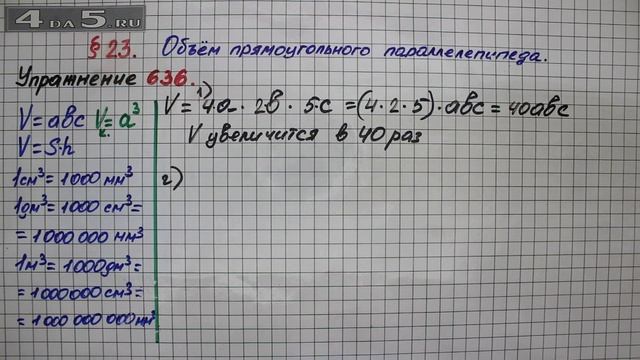 4DA5.RU
§ 23. Объём прямоугольного параллелепипеда.
Упражнение 636.
V = abc V = a³
V = S·h
1см³ = 1000 мм³
1дм³ = 1000 см³ =
= 1 000 000 мм³
1м³ = 1000дм³ =
= 1000000см³ =
= 1 000 000 000мм³
1)
V = 4a · 2b · 5c = (4·2·5)·abc = 40abc
V увеличится в 40 раз
2)